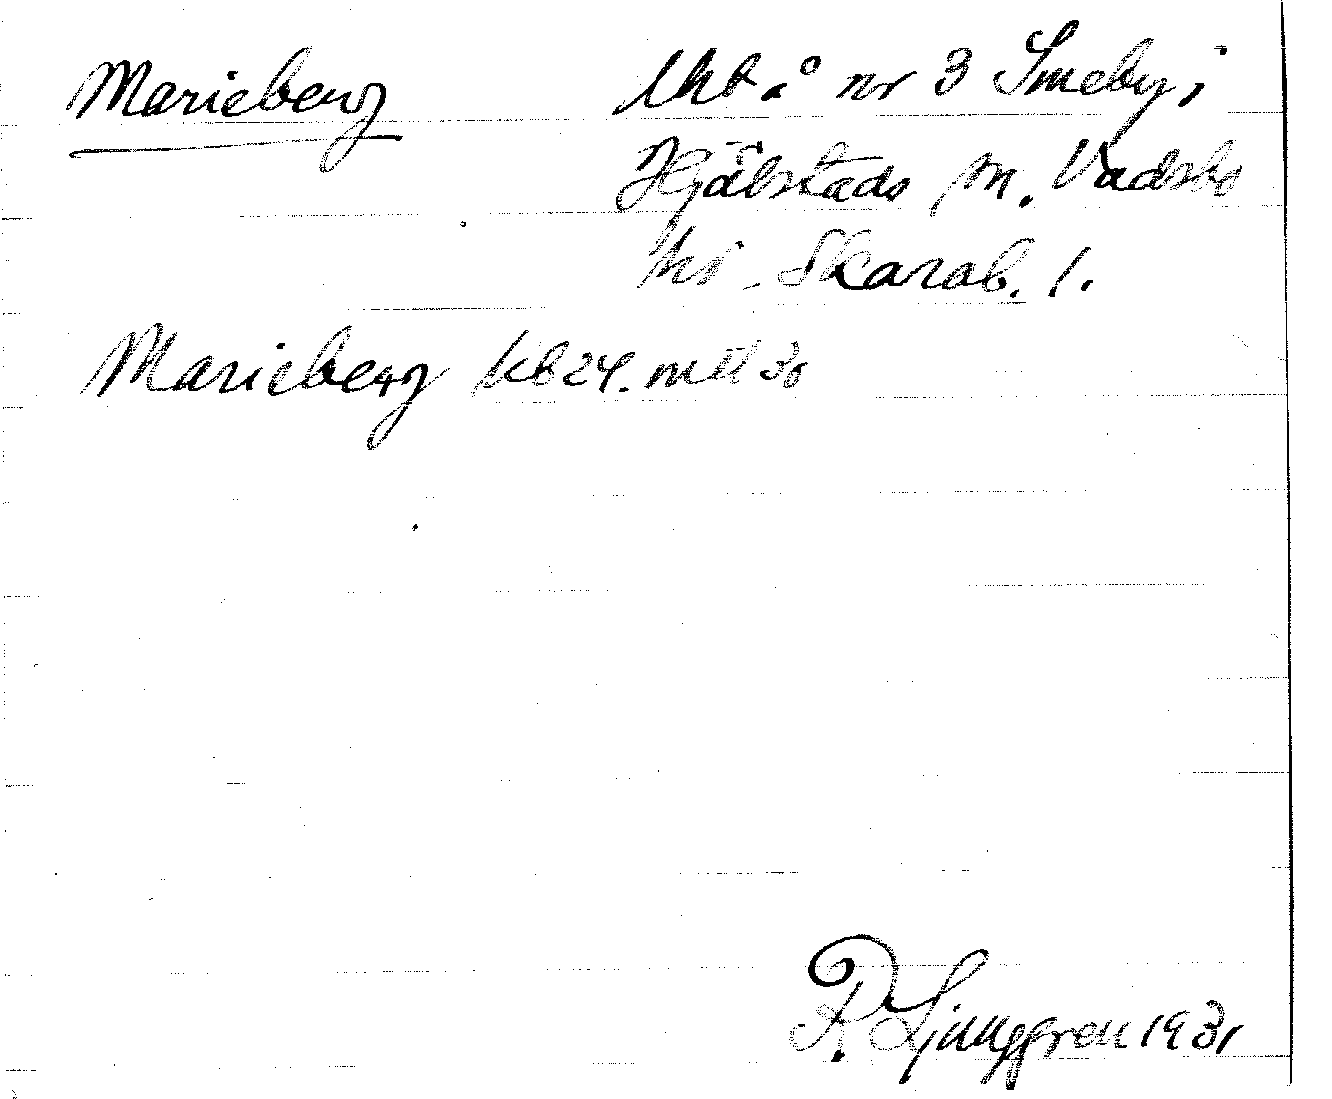 Marieberg lht. å nr 3 Smeby i
Hjälstads sn. Vadsbo
hd. Skarab. l.
Marieberg kb 24. mtl 38
R. Ljunggren 1931